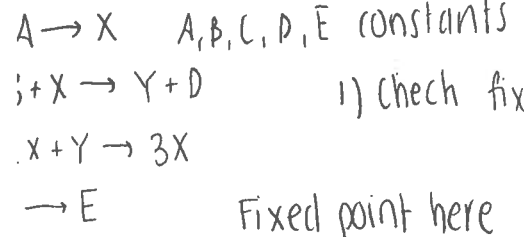 A → X A, B, C, D, E constants
+ X → Y + D 1) Chech fix
X + Y → 3X
→ E Fixed point here